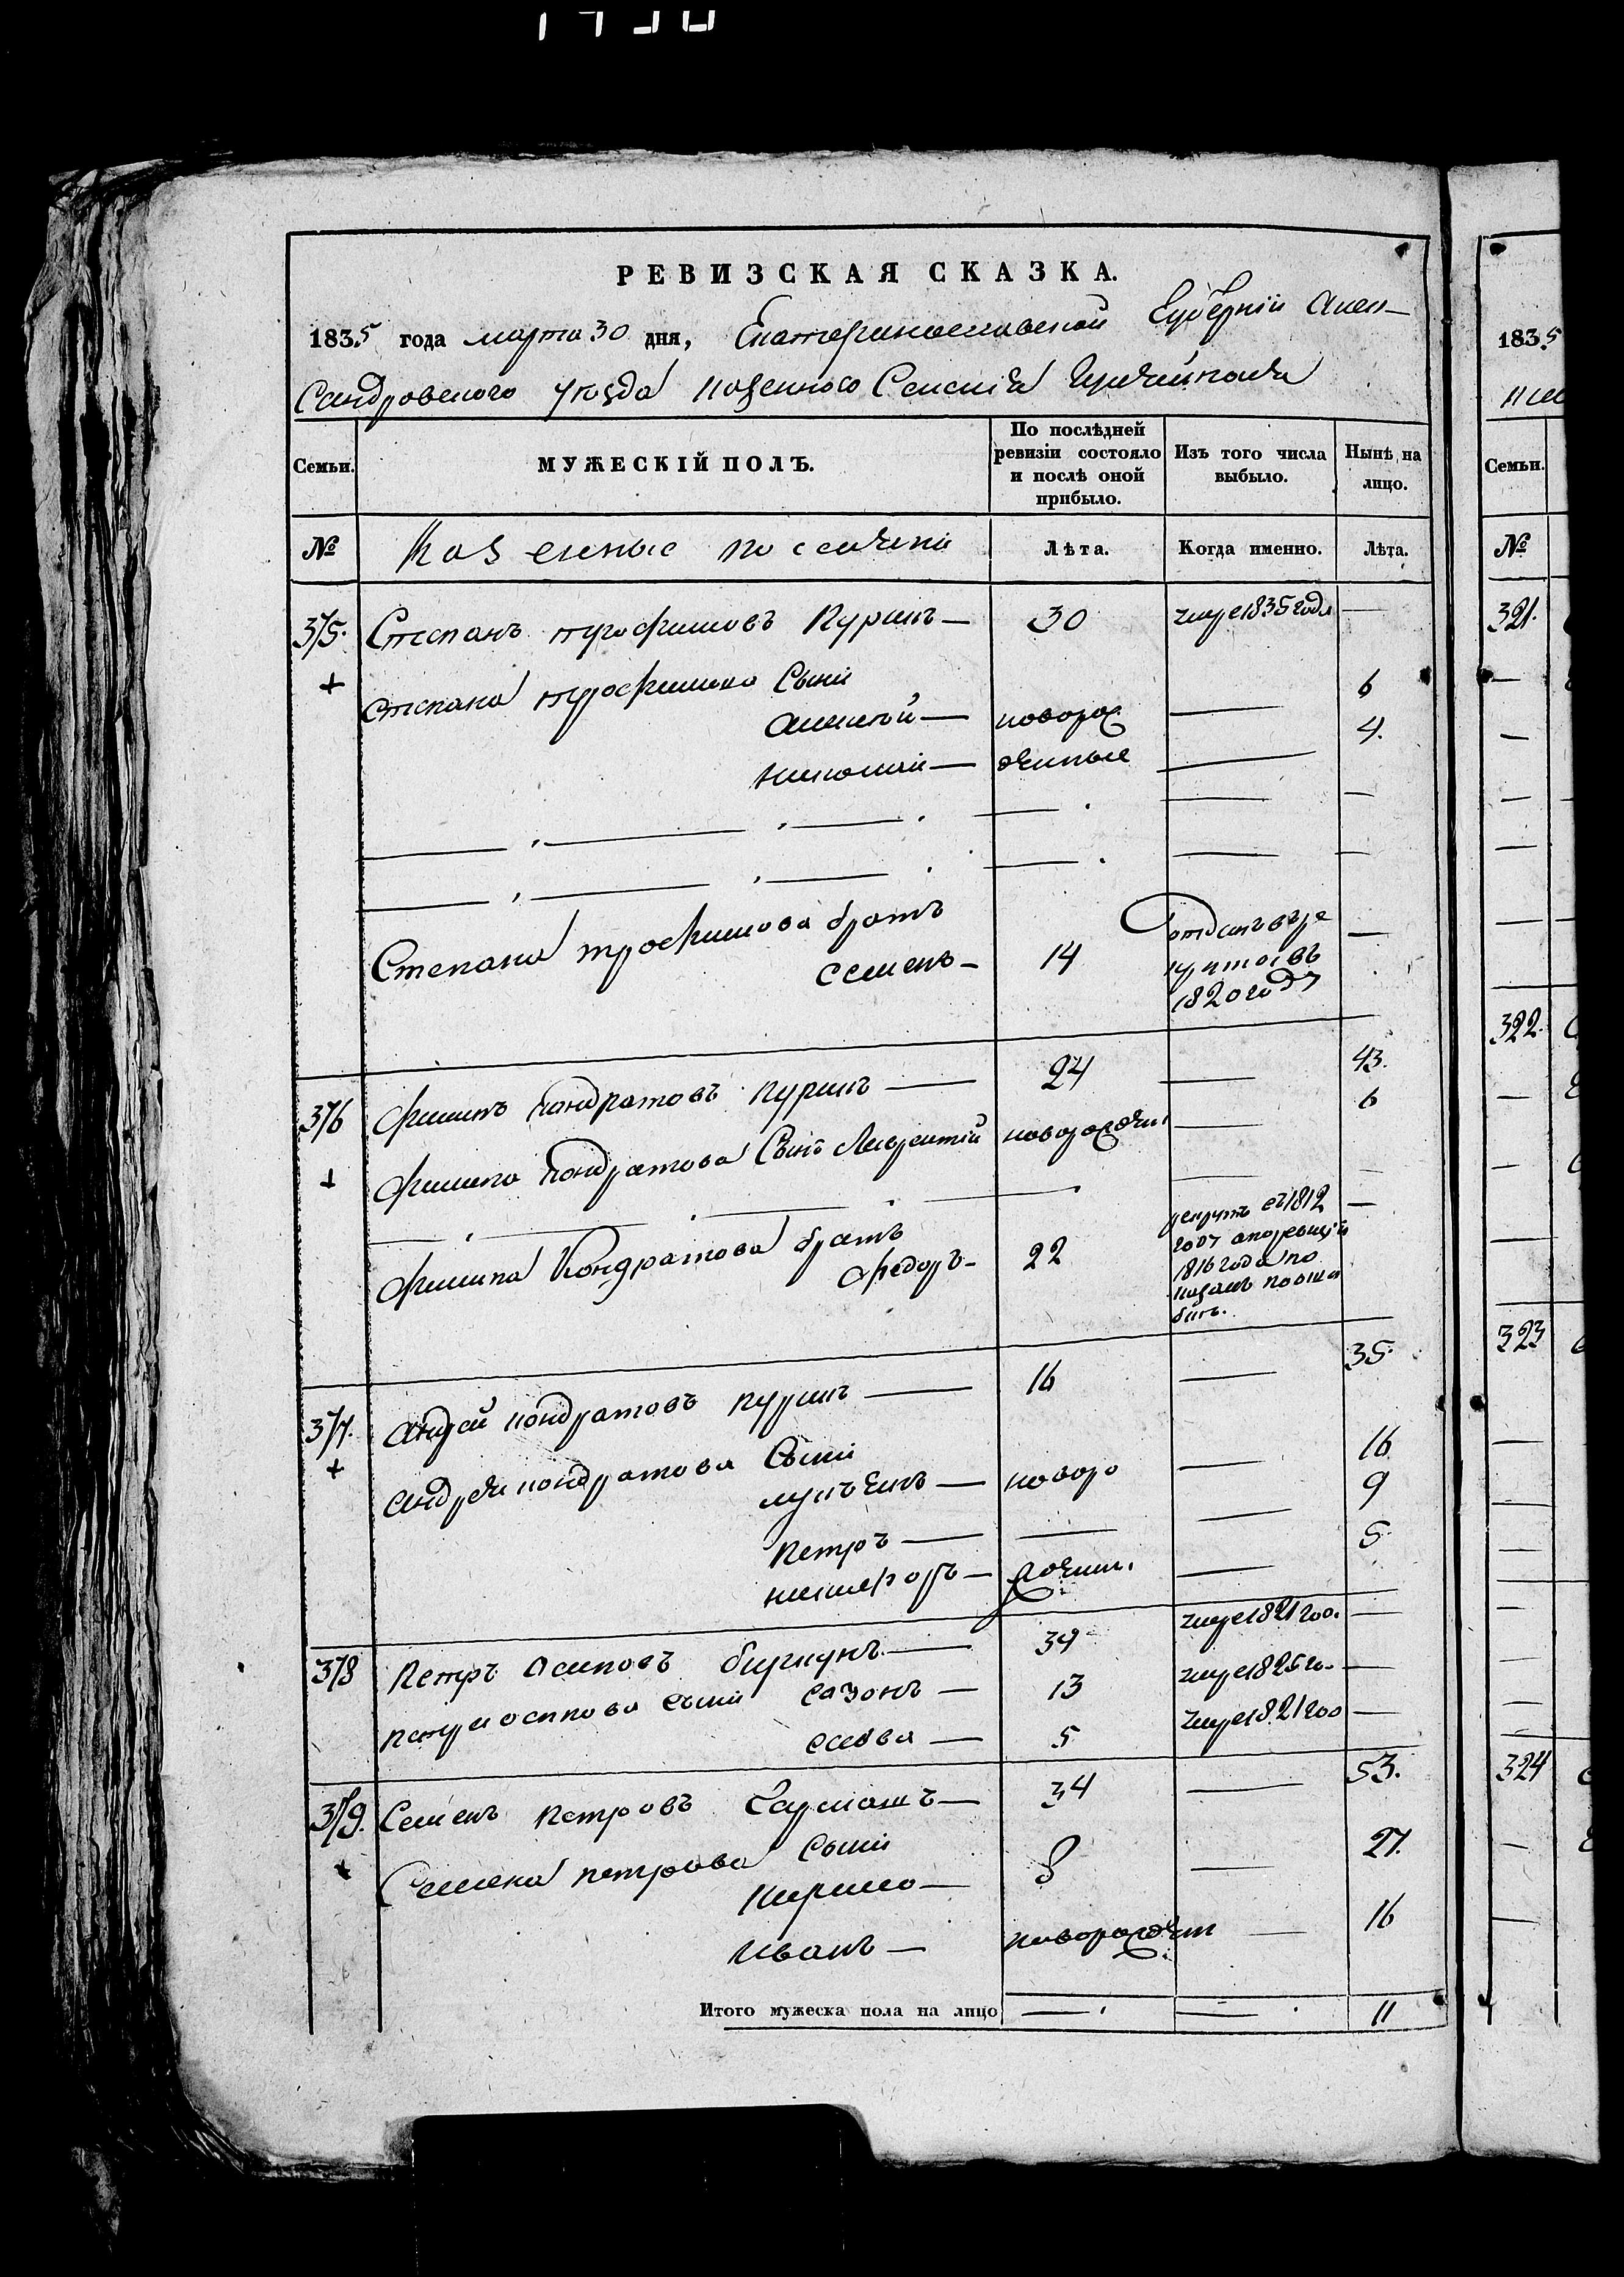 РЕВИЗСКАЯ СКАЗКА.
1835 года марта 30 дня, Екатеринославской Губерніи Алек-
сандровского уезда казенного Селенія
Семьи.
МУЖЕСКІЙ ПОЛЪ.
По послѣдней ревизіи состояло и послѣ оной прибыло.
Изъ того числа выбыло.
Нынѣ на лицо.
№
Казенные поселяни
Лѣта.
Когда именно.
Лѣта.
375. Степанъ трофимовъ Куринъ — 30 умре 1835 года —
+ степана трофимова Сыни
алексѣй — новорож — 6
николай — денные — 4.
Степана трофимова братъ
семенъ — 14 отданъ въ ре
круты въ
1820 году —
376 филипъ кондратовъ куринъ — 24 — 43.
+ филипа кондратова Сынъ Лаврентій новорожден — 6
филипа Кондратова братъ
федоръ — 22 рекрутъ съ 1812
году а по ревизіи
1816 года по
казанъ по оши
бкѣ. —
377. андрей кондратовъ куринъ — 16 — 35.
+ андрея кондратова Сыни
лукъянъ — новоро — 16
петръ — 9
никифоръ — жденн. — 5
378 петръ осиповъ — 39 умре 1821 год. —
петра осипова сыни сазонъ — 13 умре 1825 го. —
савва — 5 умре 1821 год —
379. Семенъ петровъ — 34 — 53.
+ Семена петрова сыни
кирило — 8 — 27.
иванъ — новорожден — 16
Итого мужеска пола на лицо — — 11
1835
Семьи.
№
321.
322.
323
324